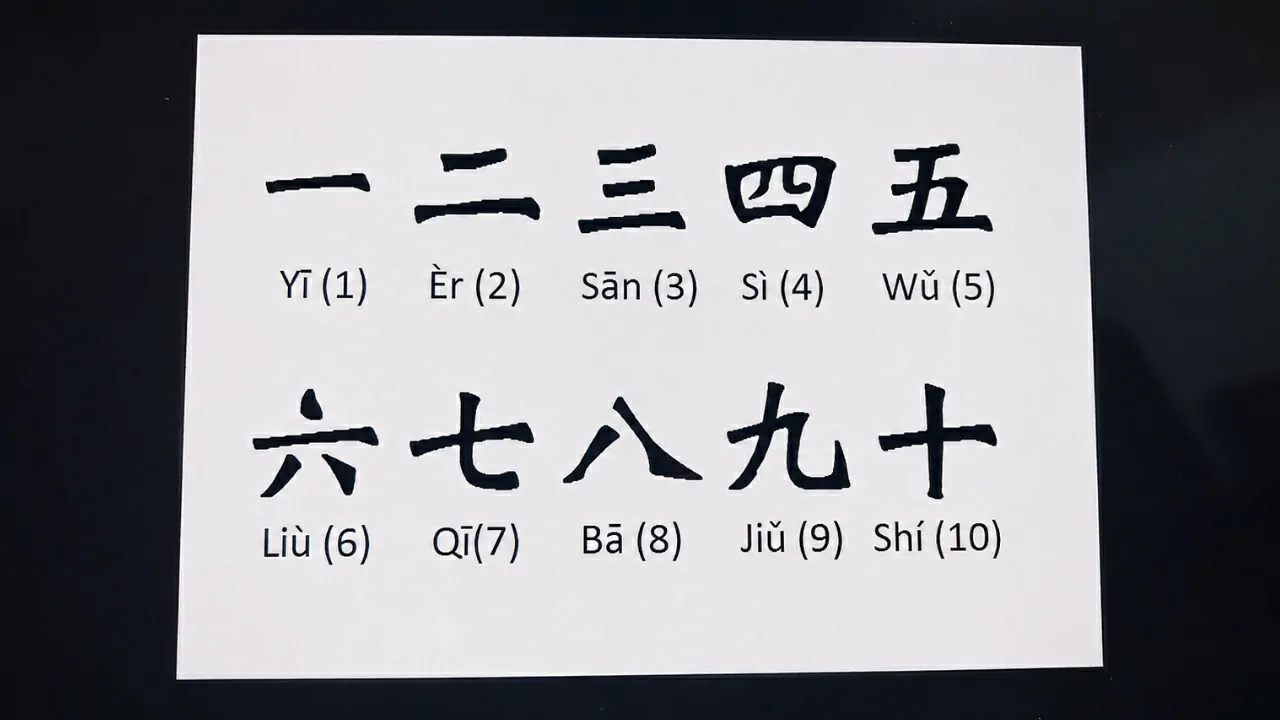 一 二 三 四 五
Yī (1) Èr (2) Sān (3) Sì (4) Wǔ (5)
六 七 八 九 十
Liù (6) Qī(7) Bā (8) Jiǔ (9) Shí (10)